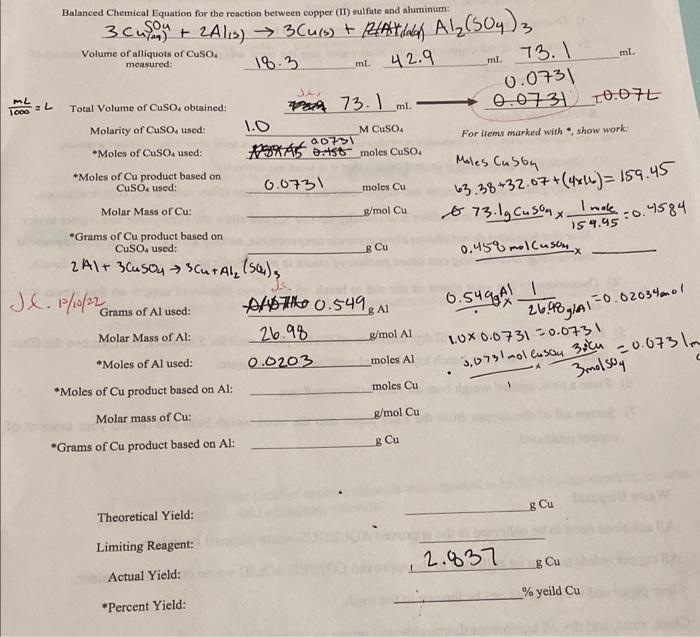 Balanced Chemical Equation for the reaction between copper (II) sulfate and aluminum:
3 CuSO4(aq) + 2Al(s) → 3Cu(s) + Al2(SO4)3
Volume of alliquots of CuSO4 measured: 18.3 mL 42.9 mL 73.1 mL
0.0731
mL/1000 = L Total Volume of CuSO4 obtained: J.C. 73.1 mL → 0.0731 0.07L
Molarity of CuSO4 used: 1.0 M CuSO4 For items marked with *, show work:
*Moles of CuSO4 used: 0.458 0.0731 moles CuSO4
Moles CuSO4
*Moles of Cu product based on CuSO4 used: 0.0731 moles Cu
63.38+32.07+(4x16)= 159.45
Molar Mass of Cu: g/mol Cu
73.1g CuSO4 x 1 mole / 159.45 = 0.4584
*Grams of Cu product based on CuSO4 used: g Cu
0.458 mol CuSO4 x
2 Al + 3CuSO4 → 3Cu + Al2 (SO4)3
J.C. 12/10/22
J.C.
Grams of Al used: 0.549 g Al
0.549g Al x 1 / 26.98 g/Al = 0.02034mol
Molar Mass of Al: 26.98 g/mol Al
1.0 x 0.0731 = 0.0731
*Moles of Al used: 0.0203 moles Al
0.0731 mol CuSO4 x 3 Cu / 3 mol SO4 = 0.0731m
1
*Moles of Cu product based on Al: moles Cu
Molar mass of Cu: g/mol Cu
*Grams of Cu product based on Al: g Cu
Theoretical Yield: g Cu
Limiting Reagent:
Actual Yield: 2.837 g Cu
*Percent Yield: % yeild Cu